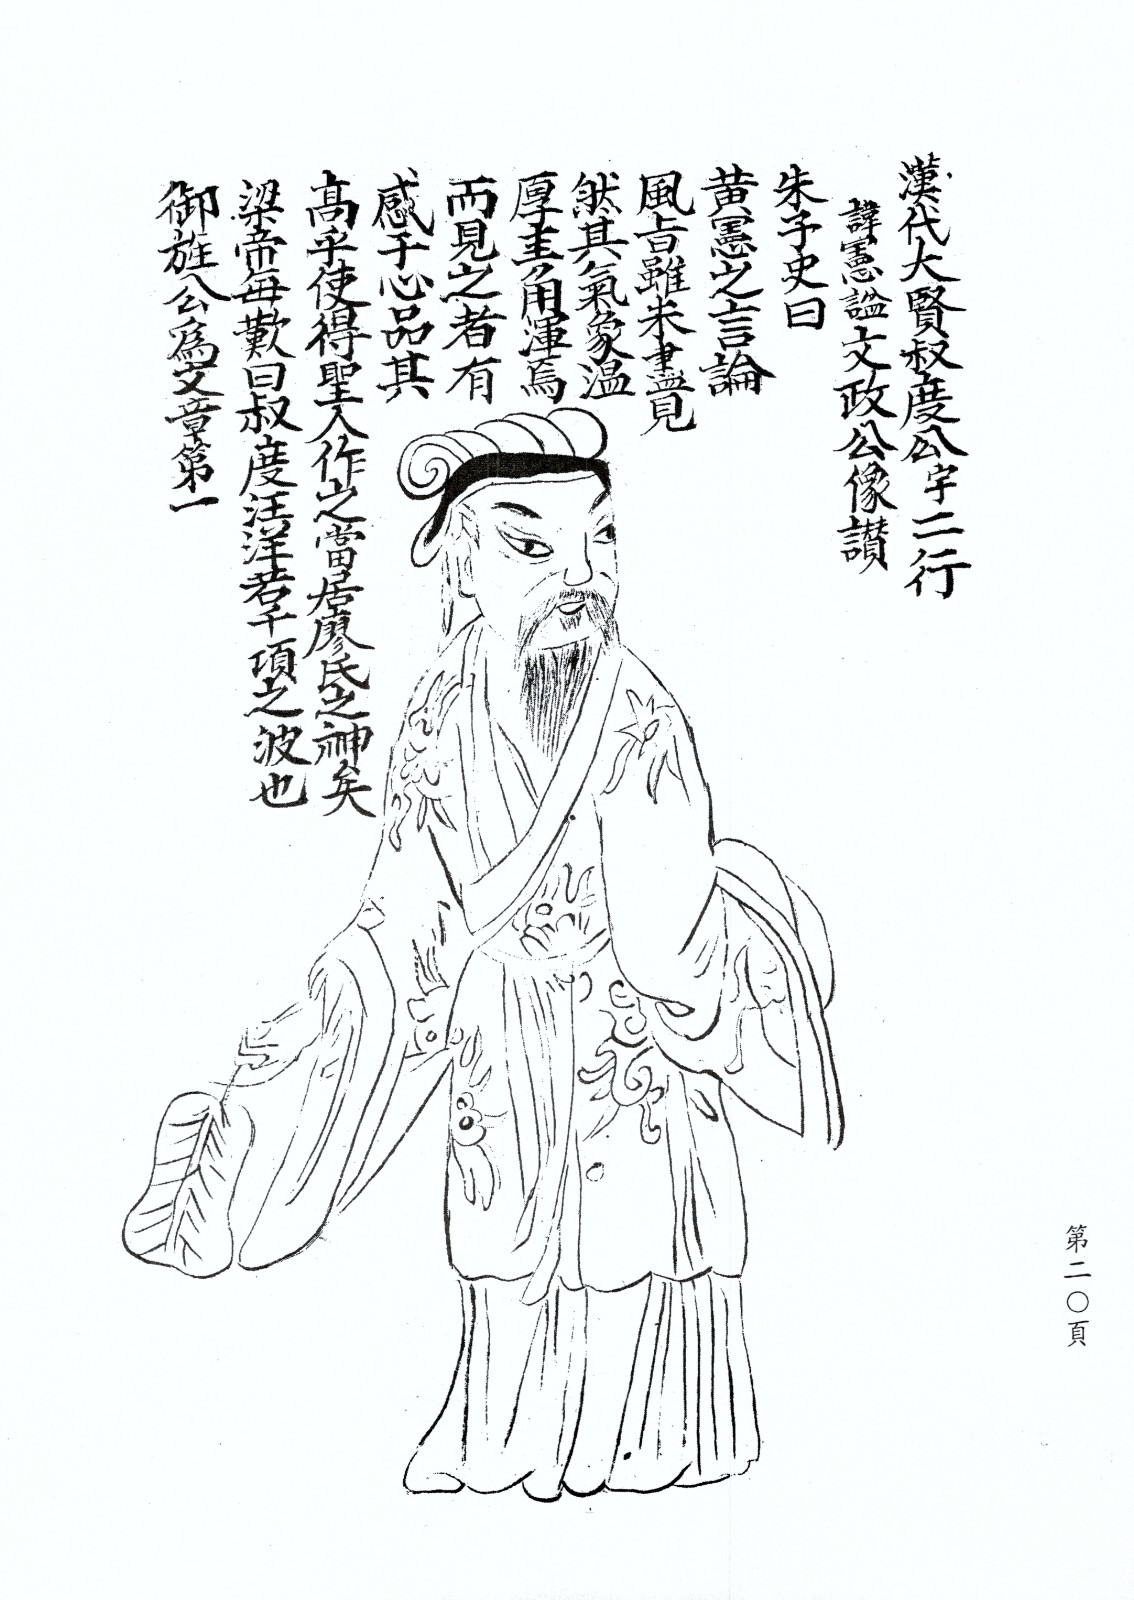 漢代大賢叔度公字二行
諱憲謚文政公像讃
朱子史曰
黄憲之言論
風旨雖未盡見
然其氣象温
厚圭角渾焉
而見之者有
感于心品其
髙乎使得聖人作之當居廖氏之神矣
梁帝每歎曰叔度汪洋若千項之波也
御旌公爲文章第一
第二〇頁